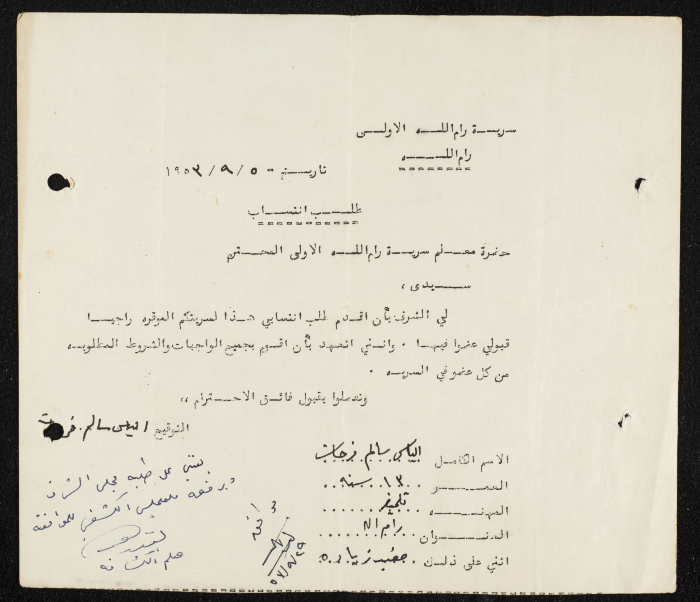 سرية رام الله الاولى
رام الله
تاريخ - ١٩٥٣/٩/٥
طلب انتساب
حضرة معلم سرية رام الله الاولى المحترم
سيدي ،
لي الشرف بأن اقدم طلب انتسابي هذا لسريتكم الموقره راجيا
قبولي عضوا فيها . وانني اتعهد بأن اقوم بجميع الواجبات والشروط المطلوبه
من كل عضو في السريه .
وتفضلوا بقبول فائق الاحترام ،،
التوقيع الياس سالم
الاسم الكامل الياس سالم فرحات
العمر ١٣ سنة
المهنه تلميذ
العنوان رام الله
انني على ذلك
على طلبه مجلس الشرف
للموافقة
معلم الكشافة
موافق